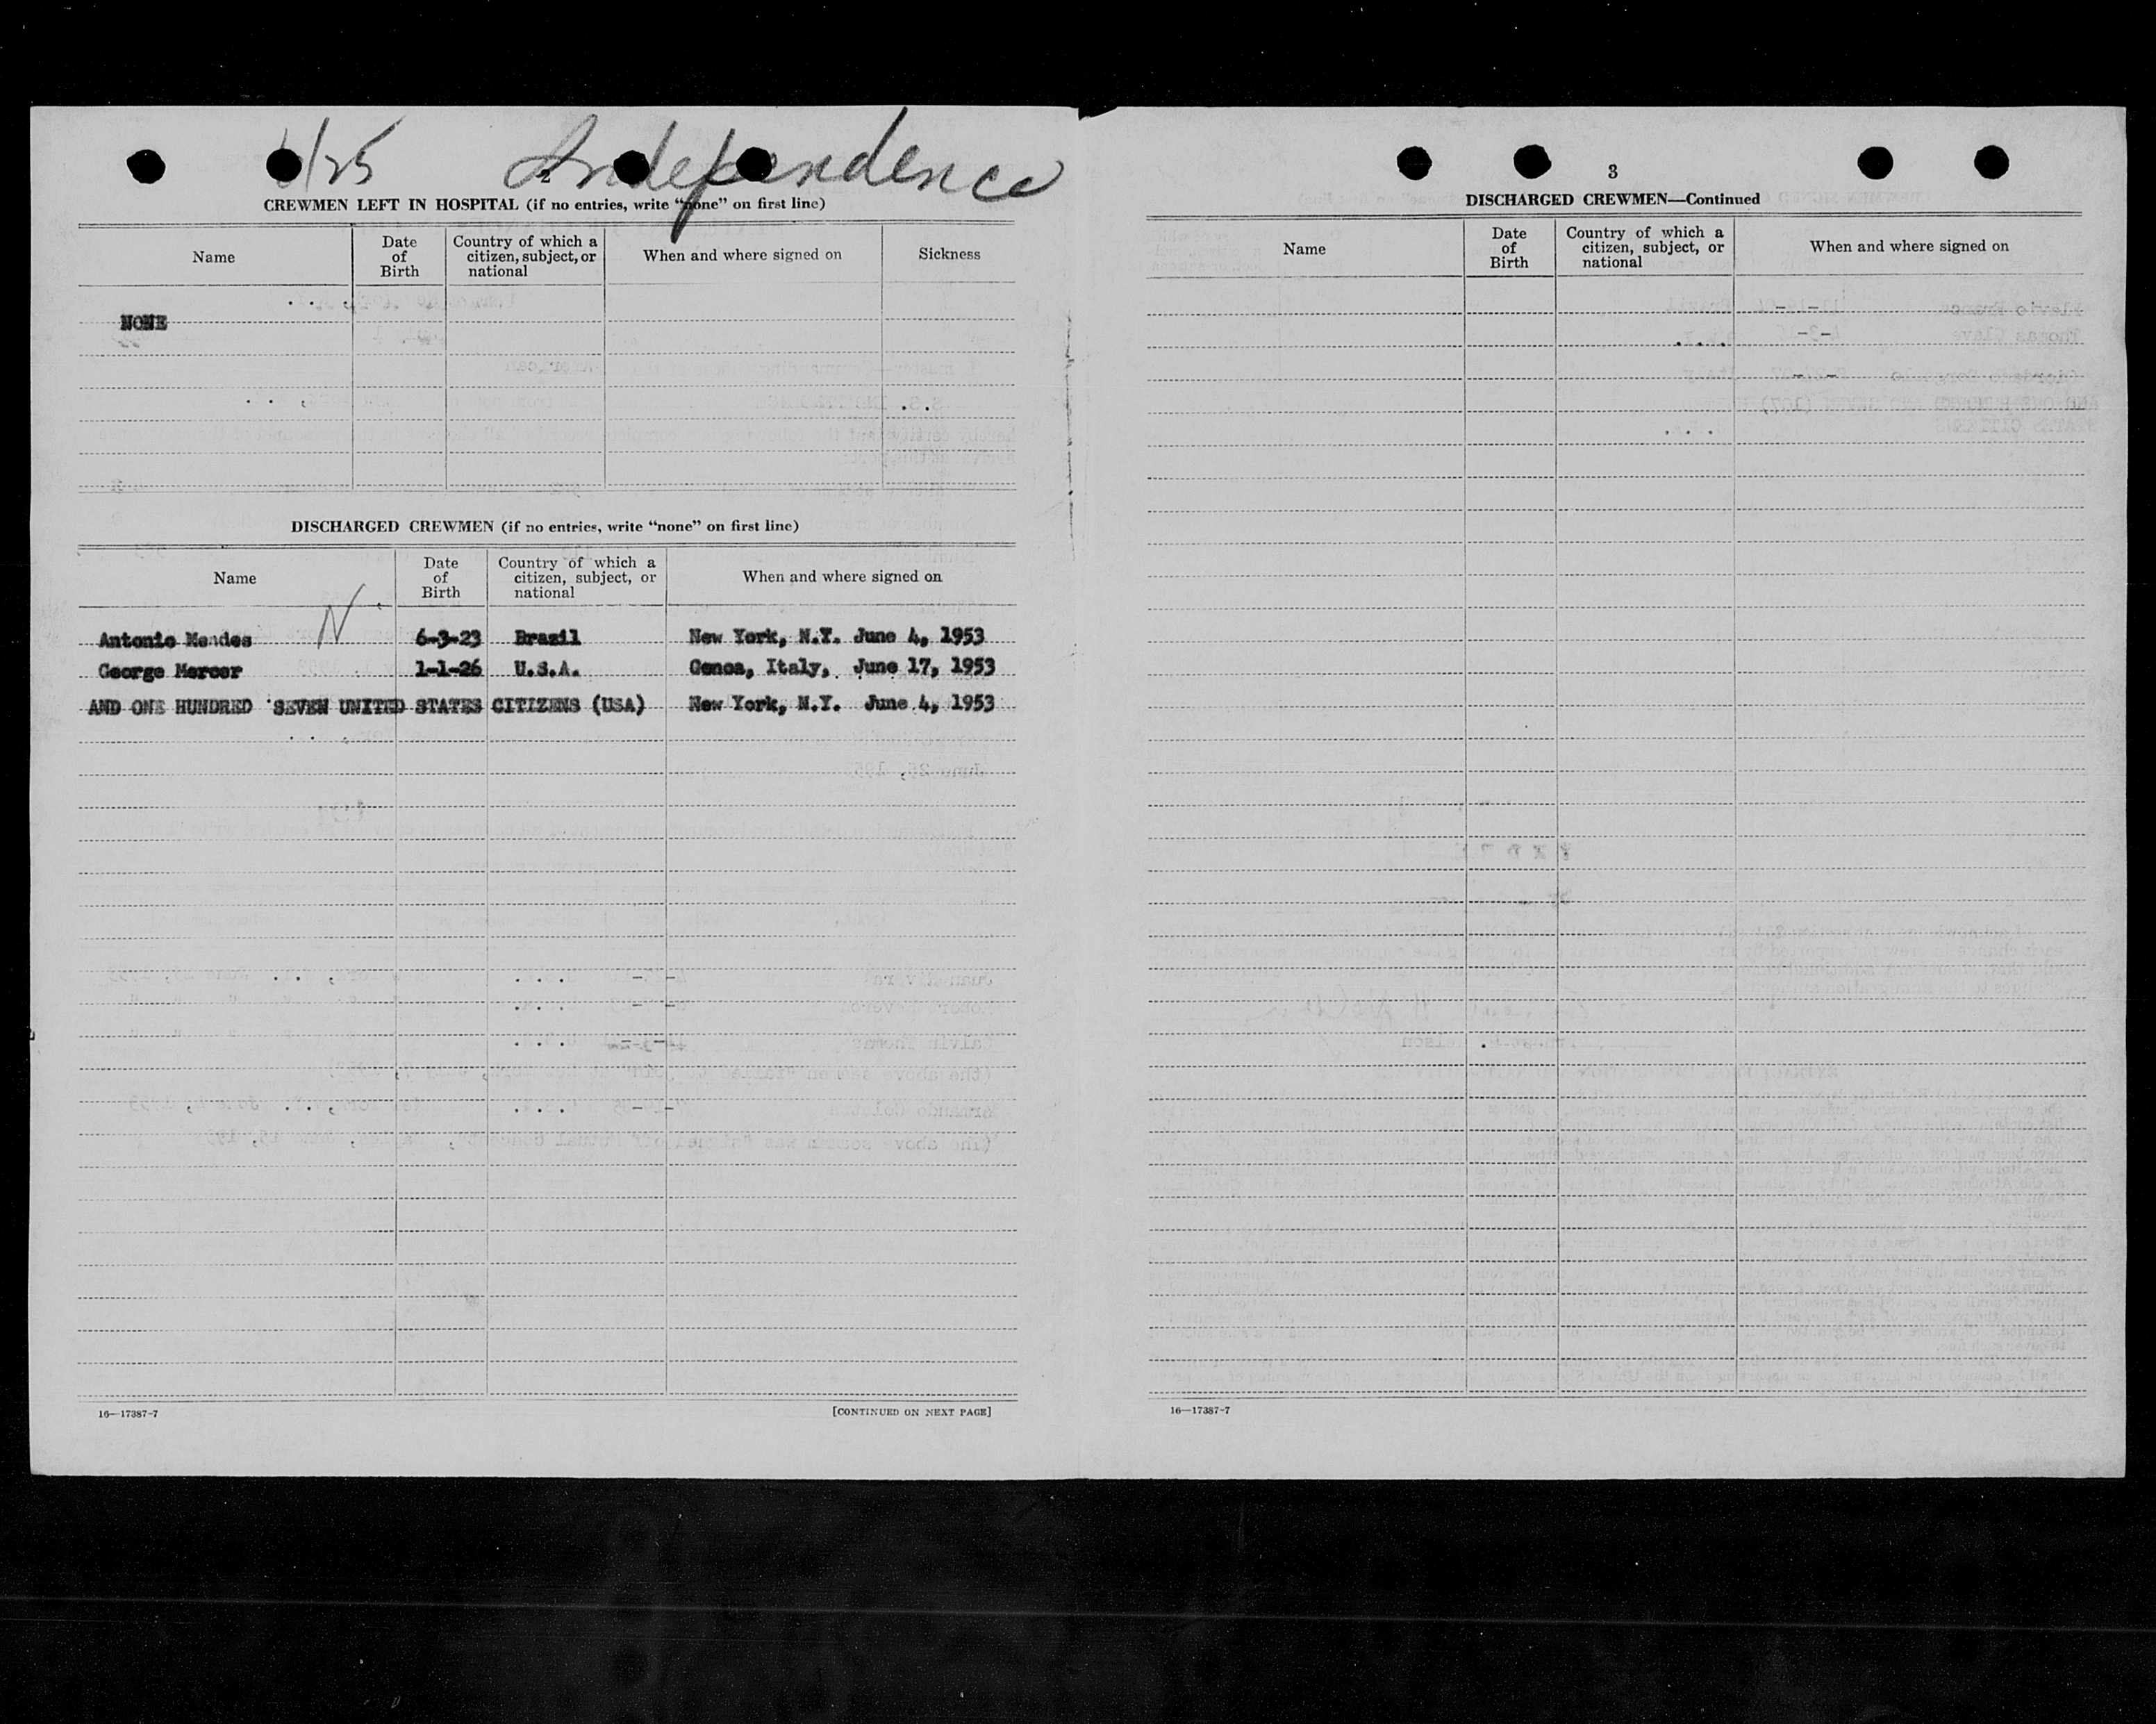 /25 Independence
2
CREWMEN LEFT IN HOSPITAL (if no entries, write “none” on first line)
Name
Date of Birth
Country of which a citizen, subject, or national
When and where signed on
Sickness
NONE
DISCHARGED CREWMEN (if no entries, write “none” on first line)
Name
Date of Birth
Country of which a citizen, subject, or national
When and where signed on
N
Antonio Mendes 6-3-23 Brazil New York, N.Y. June 4, 1953
George Mercer 1-1-26 U.S.A. Genoa, Italy, June 17, 1953
AND ONE HUNDRED SEVEN UNITED STATES CITIZENS (USA) New York, N.Y. June 4, 1953
16—17387-7
[CONTINUED ON NEXT PAGE]
3
DISCHARGED CREWMEN—Continued
Name
Date of Birth
Country of which a citizen, subject, or national
When and where signed on
16—17387-7